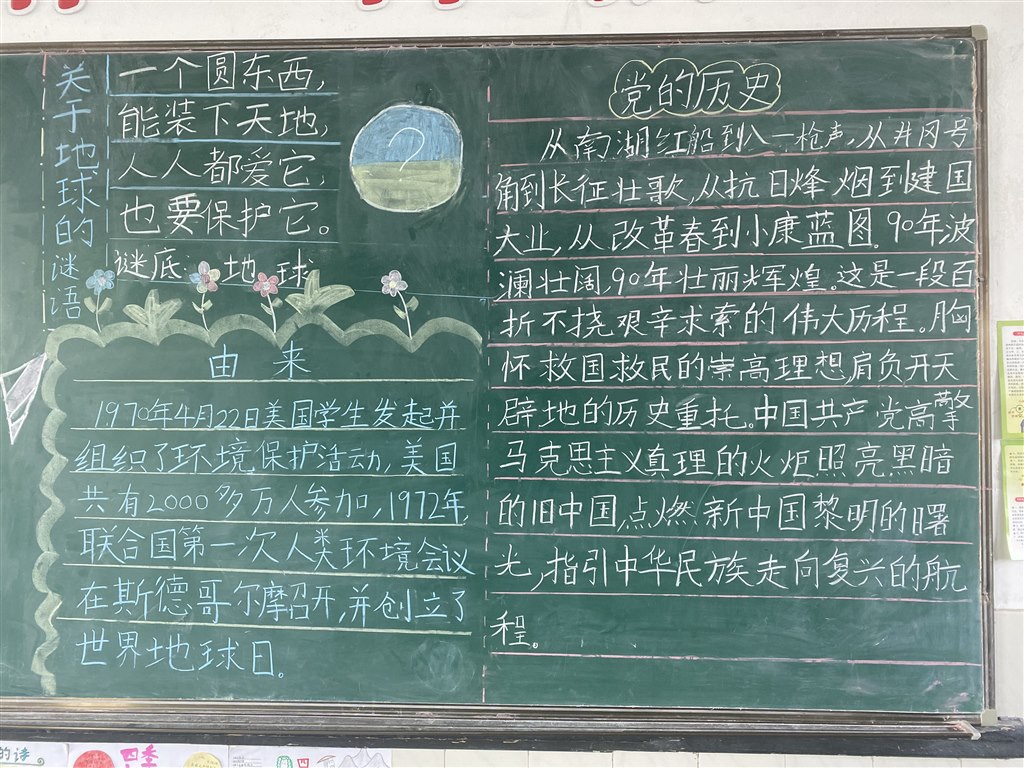 关于地球的谜语
一个圆东西,
能装下天地,
人人都爱它,
也要保护它。
谜底:地球
?
由来
1970年4月22日美国学生发起并
组织了环境保护活动,美国
共有2000多万人参加,1972年,
联合国第一次人类环境会议
在斯德哥尔摩召开,并创立了
世界地球日。
党的历史
从南湖红船到八一枪声,从井冈号
角到长征壮歌,从抗日烽烟到建国
大业,从改革春到小康蓝图.90年波
澜壮阔,90年壮丽辉煌。这是一段百
折不挠艰辛求索的伟大历程。胸
怀救国救民的崇高理想,肩负开天
辟地的历史重托。中国共产党高擎
马克思主义真理的火炬照亮黑暗
的旧中国,点燃新中国黎明的曙
光,指引中华民族走向复兴的航
程。
的诗
四季